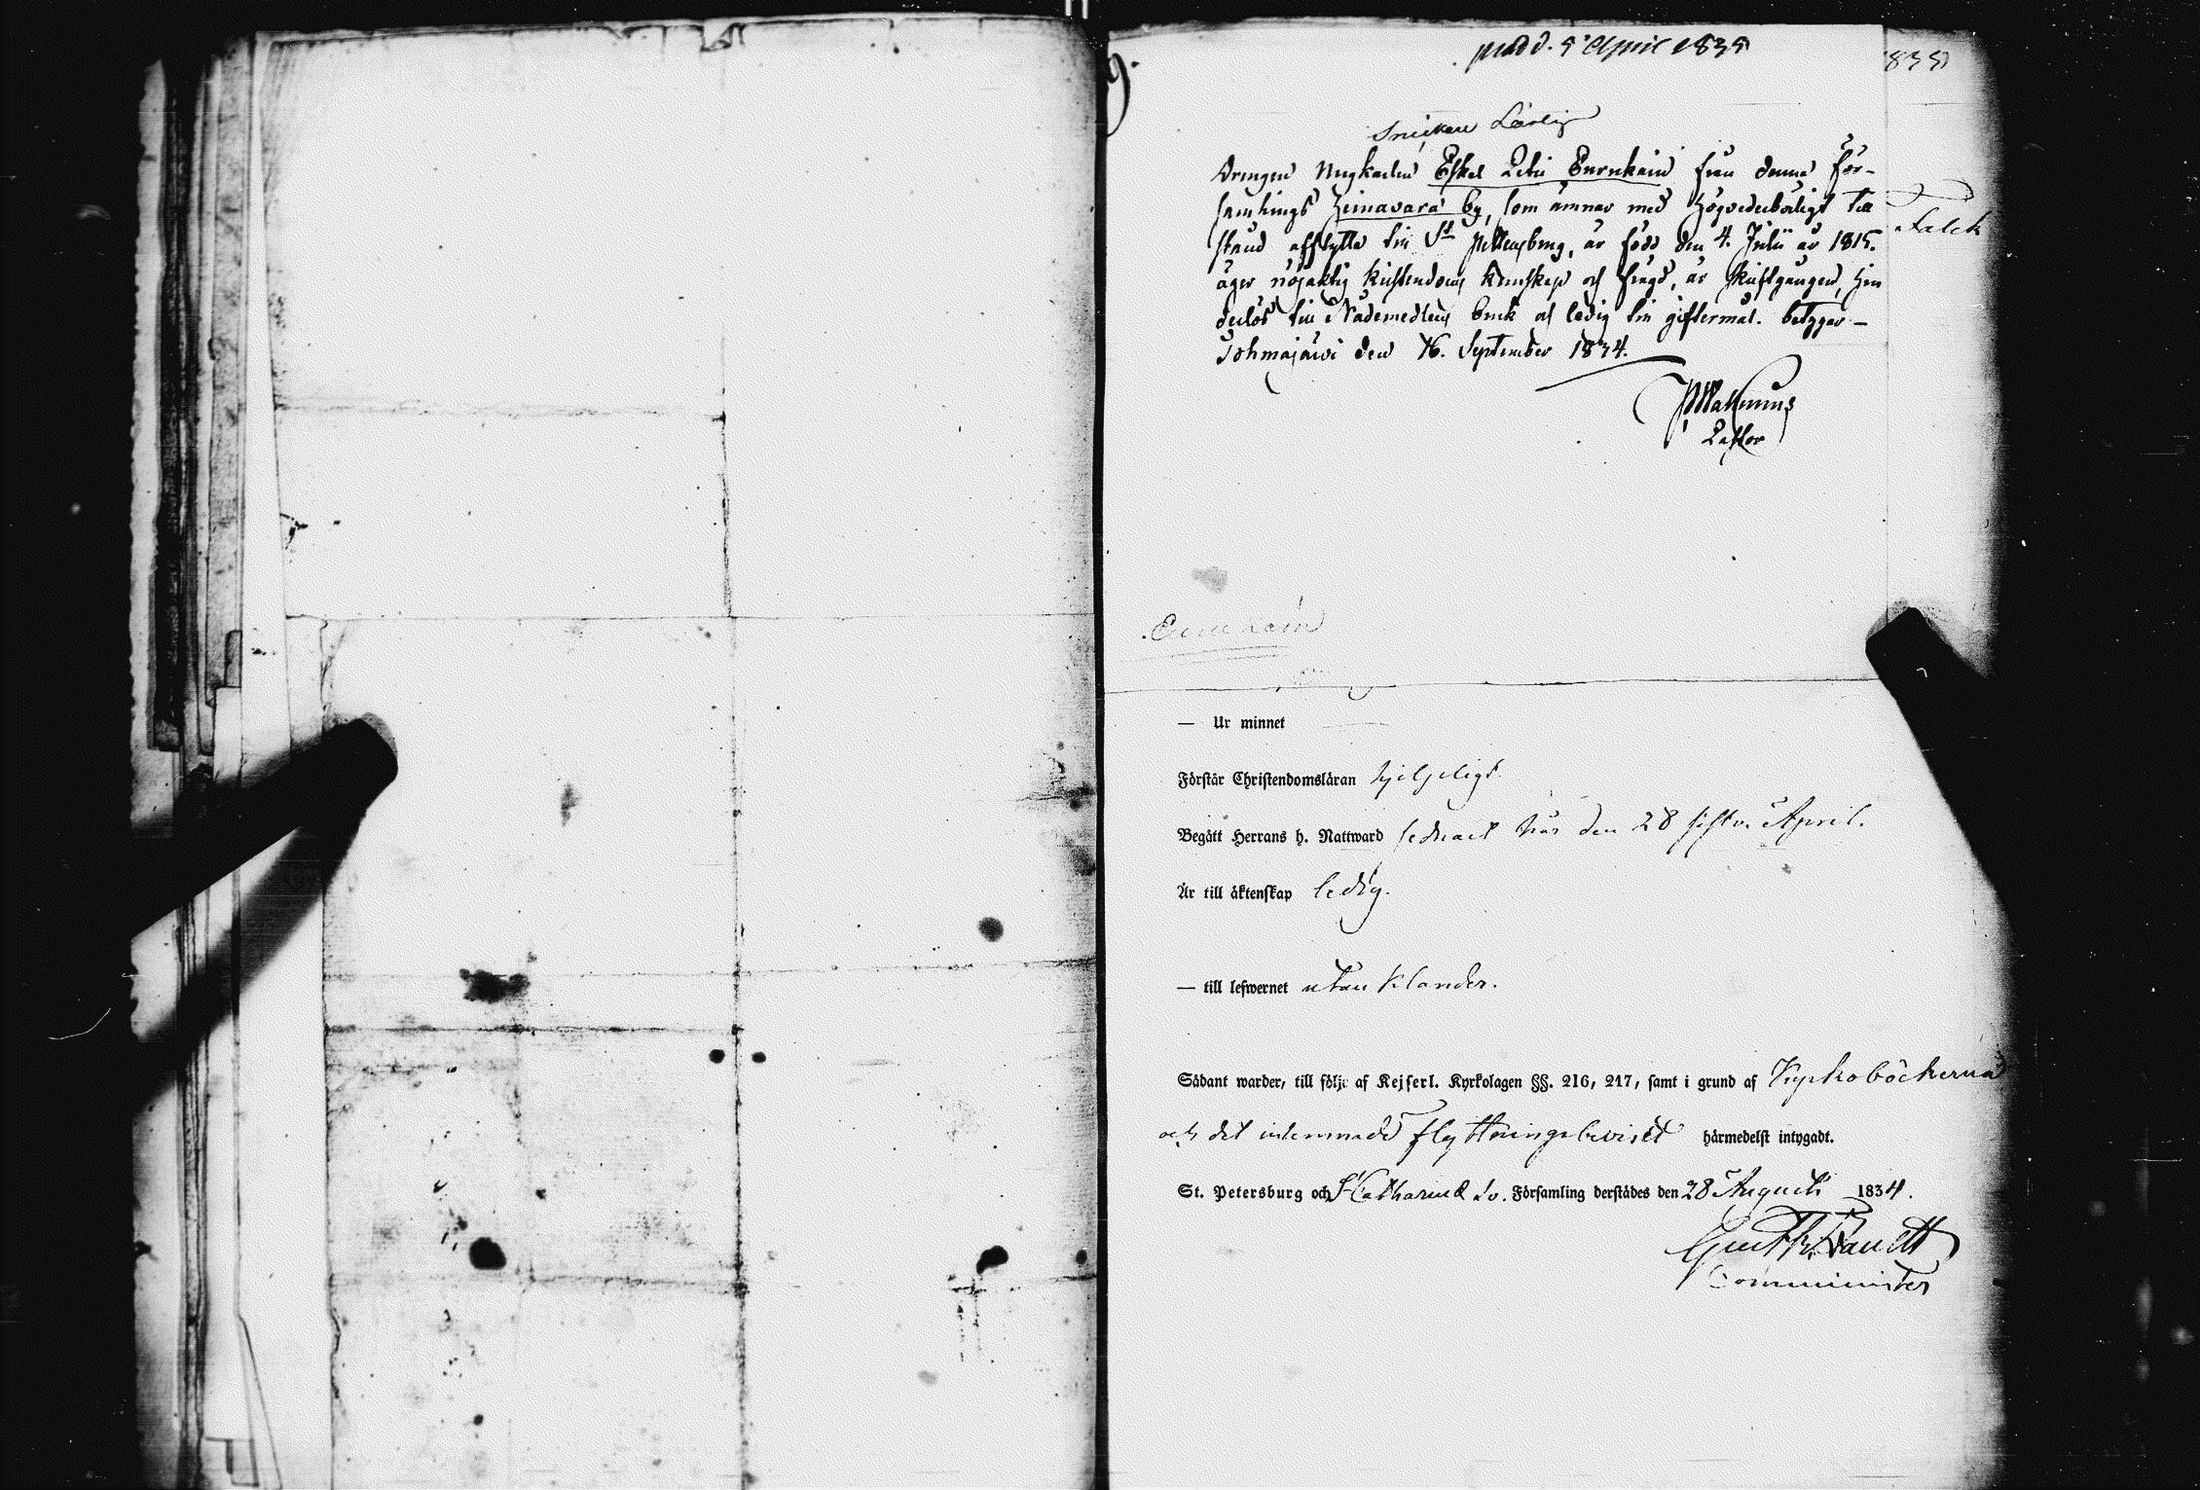 prod d. 5 April 1835
1835
Snickare Lärling
Drengen Ungkarlen Eskel Eskelin Eurenkain från denna För-
samlings Heinavara by, som ämnar med högvederbörligt till
stånd afflytta till St Pettersburg, är född den 4. Julii år 1815.
äger nöjaktig Kristendoms kunskap och frägd, är skriftgången, hin
derlös till Nådemedlens bruk och ledig till giftermål. betygar —
Tohmajärvi den 16. September 1834.
Pastor
Falck
— Ur minnet
Förstår Christendomsläran hjelpeligt.
Begått Herrans h. Nattward sednast här den 28 sistl. April.
Är till äktenskap ledig.
— till lefwernet utan klander.
Sådant warder, till följe af Kejserl. Kyrkolagen §§. 216, 217, samt i grund af Kyrkoböckerna
och det inlemnade flyttningsbeviset härmedelst intygadt.
St. Petersburg och S:t Catharinæ Sv. Församling derstädes den 28 Augusti 1834.
Comminister